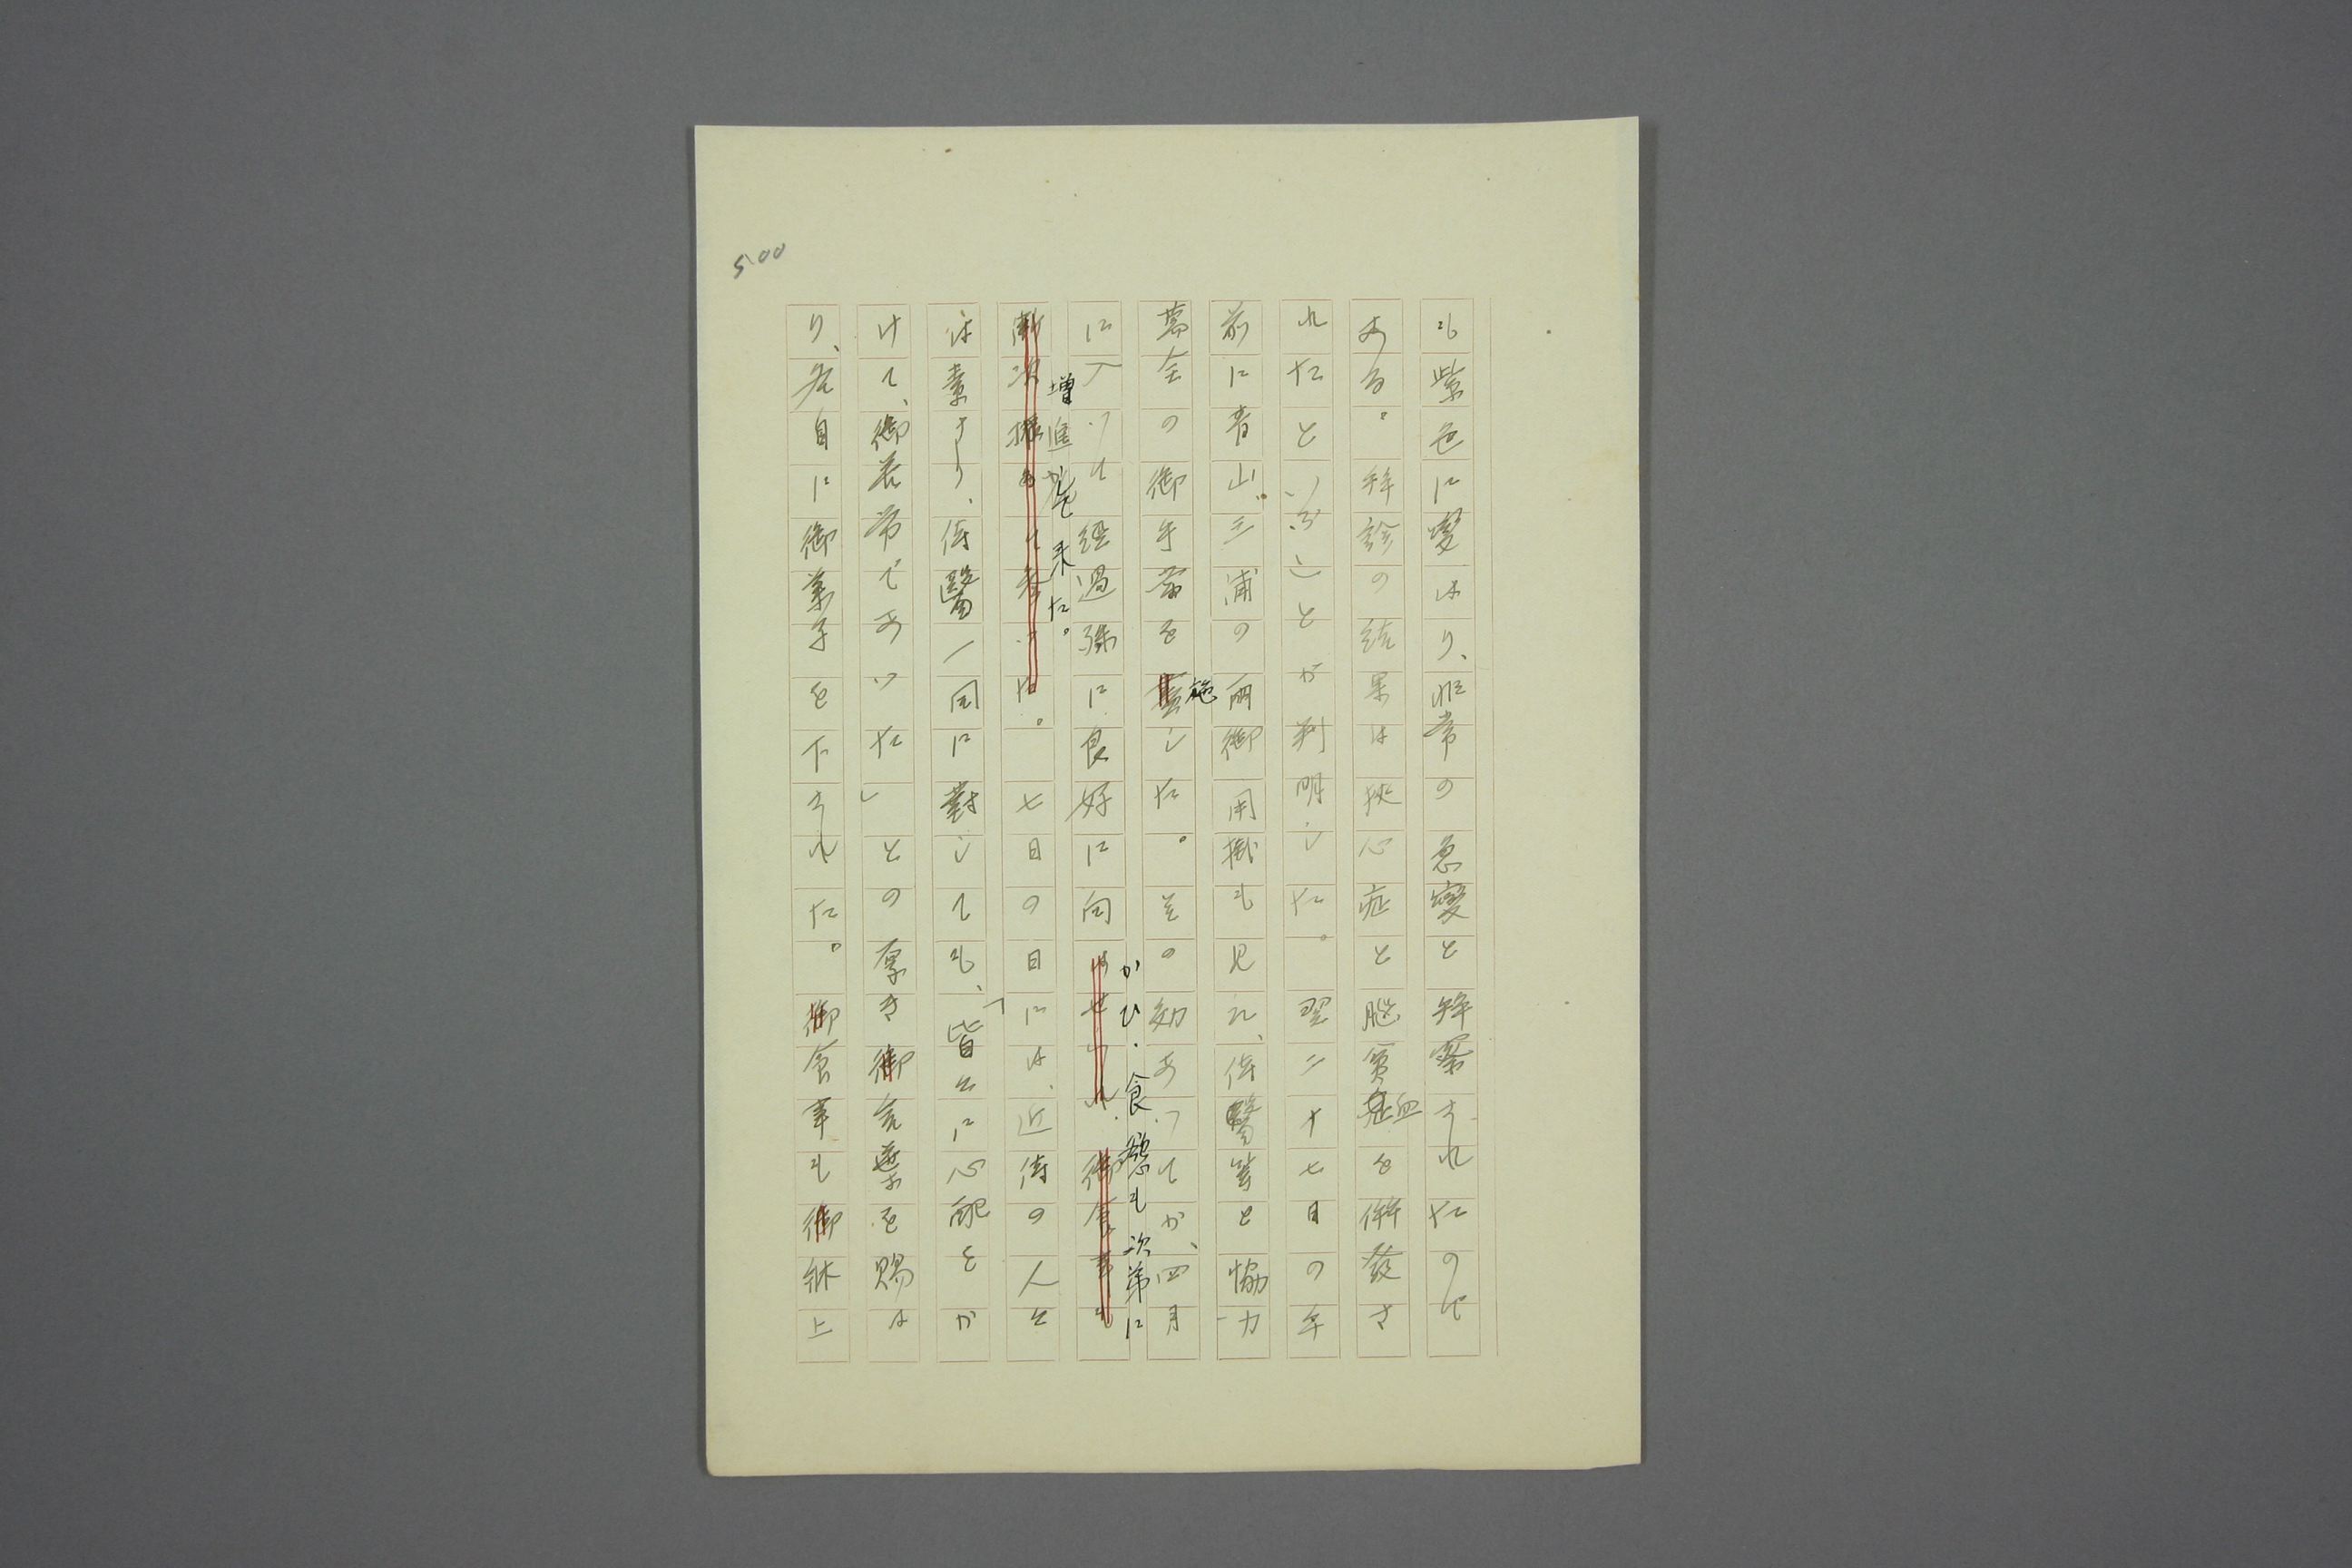 500
も紫色に變はり、非常の急變と拝察されたので
ある。拝診の結果は狹心症と脳貧血を併發さ
れたといふことが判明した。翌二十七日の午
前に青山、三浦の兩御用掛も見れ、侍醫等と協力
施
萬全の御手當を盡した。その効あつてか、四月
かひ、食慾も次第に
に入つて經過殊に良好に向はせられ、御食事も
増進して来た。
漸次振つて參つた。七日の日には、近侍の人々
は素より、侍醫一同に對しても、「皆々に心配をか
けて、御苦労であつた」との厚き御言葉を賜は
り、各自に御菓子を下された。御食事も御床上